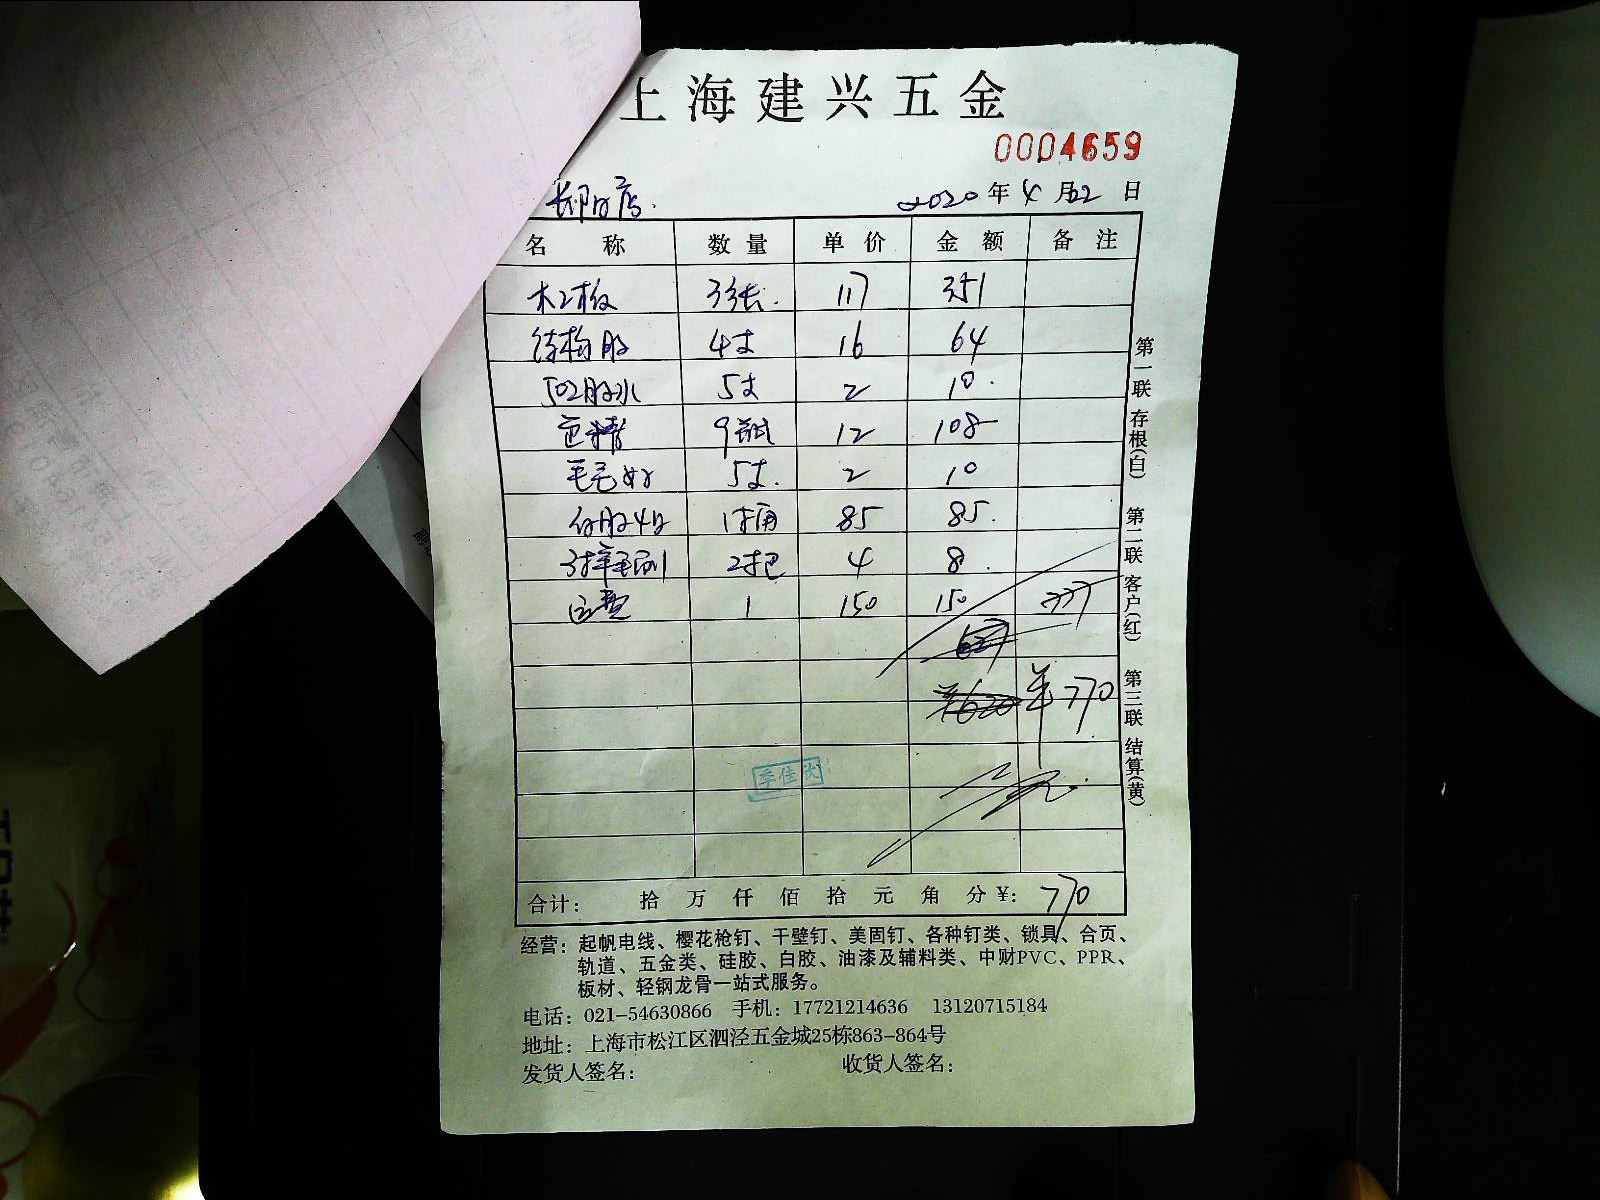 上海建兴五金
0004659
2020年4月22日
名称 数量 单价 金额 备注
木工板 3张. 117 351
结构胶 4支 16 64
502胶水 5支 2 10.
色精 9瓶 12 108
5支. 2 10
白胶 1桶 85 85.
毛刷 2把 4 8.
运费 1 150 150 777
627
¥620 ¥770
季佳
合计: 拾 万 仟 佰 拾 元 角 分 ¥: 770
第一联 存根(白) 第二联 客户(红) 第三联 结算(黄)
经营: 起帆电线、樱花枪钉、干壁钉、美固钉、各种钉类、锁具、合页、
轨道、五金类、硅胶、白胶、油漆及辅料类、中财PVC、PPR、
板材、轻钢龙骨一站式服务。
电话: 021-54630866 手机: 17721214636 13120715184
地址: 上海市松江区泗泾五金城25栋863-864号
发货人签名: 收货人签名: